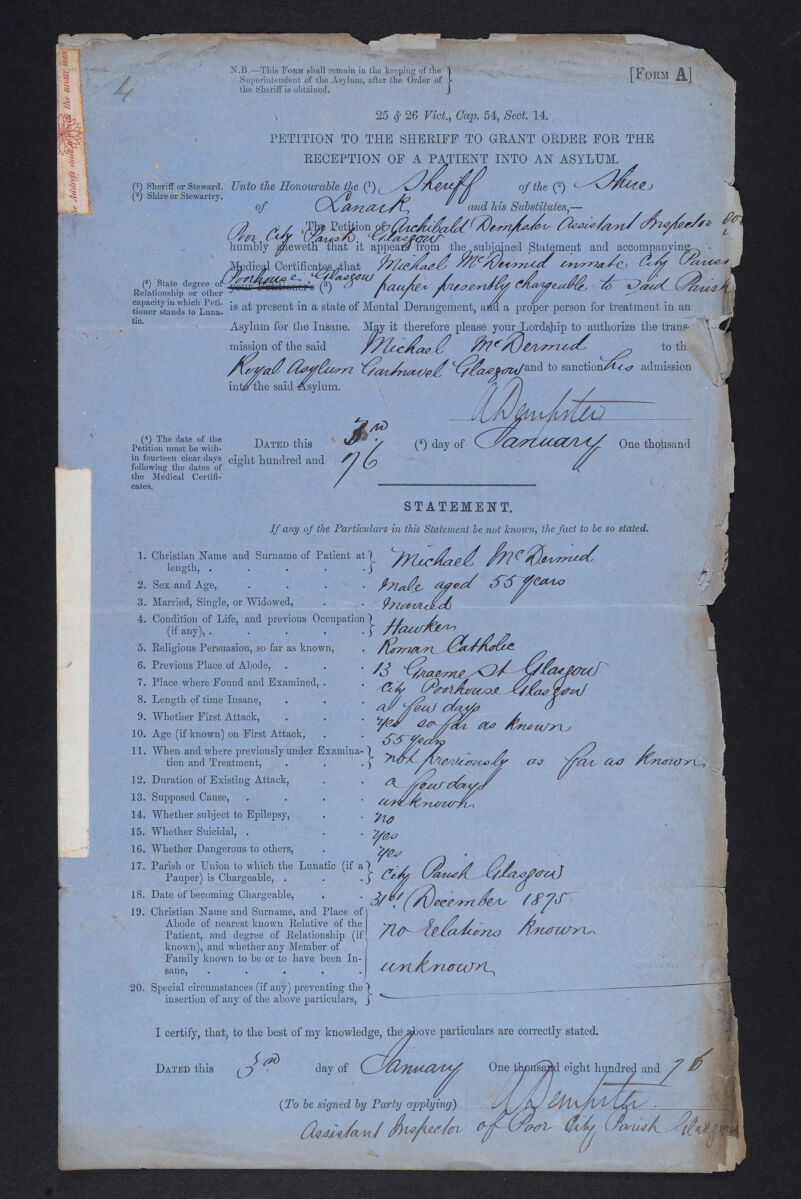 4
N.B.—This Form shall remain in the keeping of the
Superintendent of the Asylum, after the Order of
the Sheriff is obtained.
[Form A]
25 & 26 Vict., Cap. 54, Sect. 14.
PETITION TO THE SHERIFF TO GRANT ORDER FOR THE
RECEPTION OF A PATIENT INTO AN ASYLUM.
(1) Sheriff or Steward.
(2) Shire or Stewartry.
Unto the Honourable the (1) Sheriff of the (2) Shire
of Lanark and his Substitutes,—
The Petition of Archibald Dempster Assistant Inspector
Poor City Parish Glasgow
humbly sheweth that it appears from the subjoined Statement and accompanying
Medical Certificates, that Michael McDermid inmate City Parish
Poorhouse Glasgow
your Petitioner's (3) pauper presently chargeable to said Parish
(3) State degree of
Relationship or other
capacity in which Peti-
tioner stands to Luna-
tic.
is at present in a state of Mental Derangement, and a proper person for treatment in an
Asylum for the Insane. May it therefore please your Lordship to authorize the trans-
mission of the said Michael McDermid to th
Royal Asylum Gartnavel Glasgow and to sanction his admission
into the said Asylum.
A Dempster
(4) The date of the
Petition must be with-
in fourteen clear days
following the dates of
the Medical Certifi-
cates.
Dated this 3rd (4) day of January One thousand
eight hundred and 76
STATEMENT.
If any of the Particulars in this Statement be not known, the fact to be so stated.
1. Christian Name and Surname of Patient at
length, . . . . . . Michael McDermid
2. Sex and Age, . . . . Male aged 55 years
3. Married, Single, or Widowed, . . Married
4. Condition of Life, and previous Occupation
(if any), . . . . . . Hawker
5. Religious Persuasion, so far as known, . Roman Catholic
6. Previous Place of Abode, . . . 13 Graeme St Glasgow
7. Place where Found and Examined, . . City Poorhouse Glasgow
8. Length of time Insane, . . . a few days
9. Whether First Attack, . . . Yes so far as known
10. Age (if known) on First Attack, . . 55 years
11. When and where previously under Examina-
tion and Treatment, . . . not previously as far as known
12. Duration of Existing Attack, . . a few days
13. Supposed Cause, . . . . unknown
14. Whether subject to Epilepsy, . . no
15. Whether Suicidal, . . . . Yes
16. Whether Dangerous to others, . . Yes
17. Parish or Union to which the Lunatic (if a
Pauper) is Chargeable, . . . City Parish Glasgow
18. Date of becoming Chargeable, . . 31st December 1875
19. Christian Name and Surname, and Place of
Abode of nearest known Relative of the
Patient, and degree of Relationship (if
known), and whether any Member of
Family known to be or to have been In-
sane, . . . . .
no relations known
unknown
20. Special circumstances (if any) preventing the
insertion of any of the above particulars,
I certify, that, to the best of my knowledge, the above particulars are correctly stated.
Dated this 3rd day of January One thousand eight hundred and 76
(To be signed by Party applying) A Dempster.
Assistant Inspector of Poor City Parish Glasgow